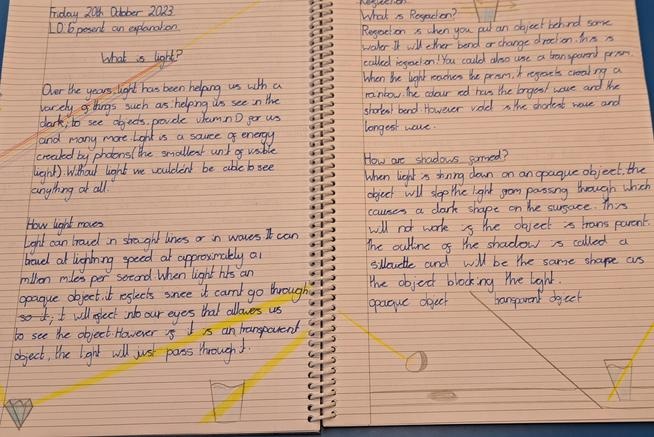 Friday 20th October 2023
L.O. to present an explanation.
What is light?
Over the years, light has been helping us with a
variety of things such as: helping us see in the
dark, to see objects, provide vitamin D for us
and many more. Light is a source of energy
created by photons (the smallest unit of visible
light). Without light we wouldn't be able to see
anything at all.
How light moves
Light can travel in straight lines or in waves. It can
travel at lightning speed at approximately
million miles per second. When light hits an
opaque object, it reflects since it can't go through
so it, it will reflect into our eyes that allows us
to see the object. However if it is an transparent
object, the light will just pass through it.
What is Refraction?
Refraction is when you put an object behind some
water it will either bend or change direction. This is
called refraction! You could also use a transparent prism.
When the light reaches the prism, it refracts creating a
rainbow. the colour red has the longest wave and the
shortest bend. However violet is the shortest wave and
longest wave.
How are shadows formed?
When light is shining down on an opaque object, the
object will stop the light from passing through which
causes a dark shape on the surface. This
will not work if the object is transparent.
The outline of the shadow is called a
and will be the same shape as
the object blocking the light.
opaque object transparent object